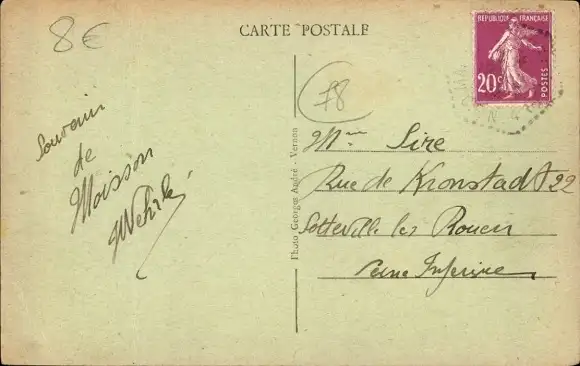 8€
CARTE POSTALE
RÉPUBLIQUE FRANÇAISE
20c
POSTES
78
Souvenir
de
Moisson
Photo Georges André - Vernon
Mme Sire
Rue de Kronstadt 22
Sotteville les Rouen
Seine Inferieure